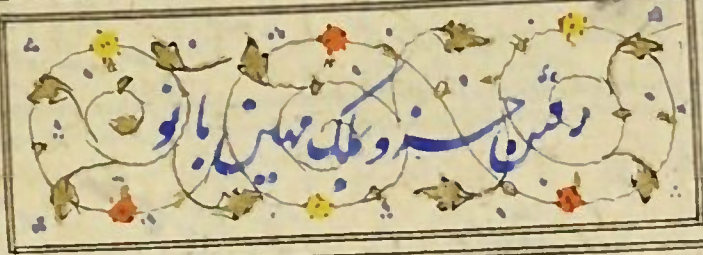 رفتن خسرو بملک مهین بانو